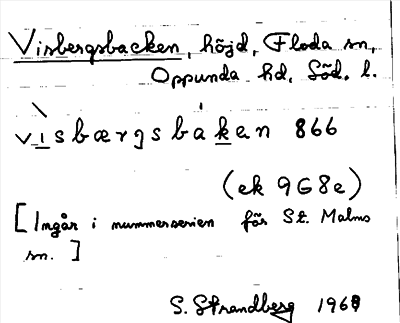 Visbergsbacken, höjd, Floda sn,
Oppunda hd, Söd. l.
visbærgsbakan 866
(ek 9G8e)
[Ingår i nummerserien för St. Malms
sn.]
S. Strandberg 1969